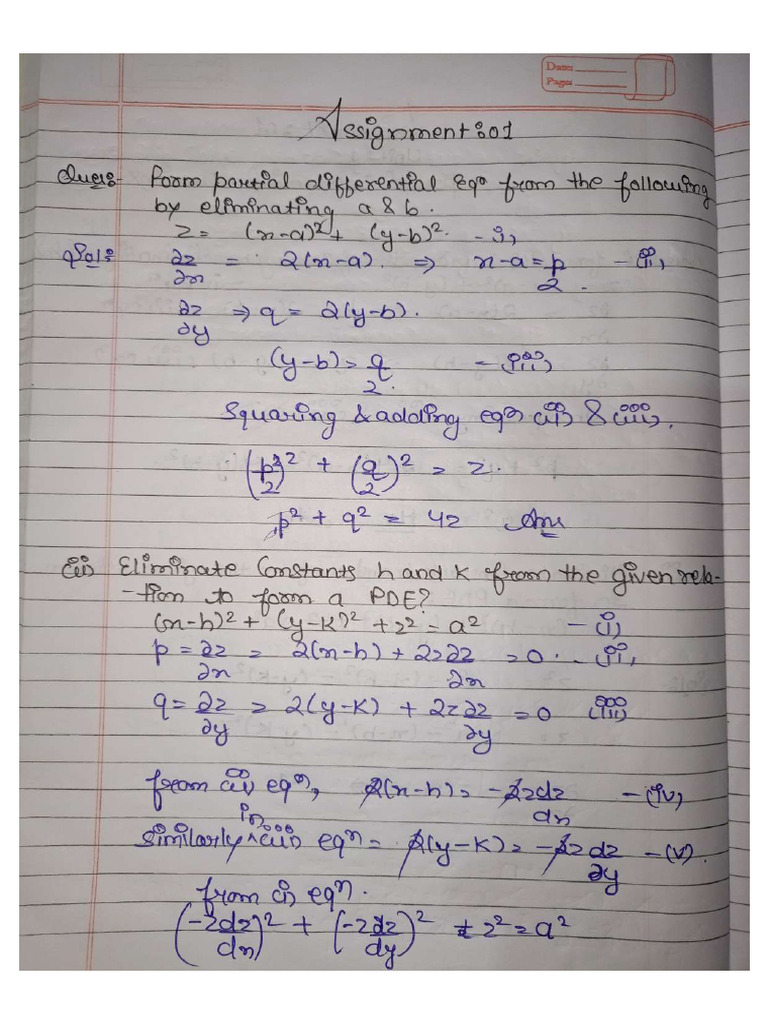 Date:
Page:
Assignment:01
Ques:- Form partial differential Eqn from the following
by eliminating a & b.
z = (x-a)² + (y-b)² - i)
Sol: ∂z/∂x = 2(x-a). ⇒ x-a = p/2. - ii)
∂z/∂y ⇒ q = 2(y-b).
(y-b) = q/2. - iii)
Squaring & adding eqn (ii) & (iii).
(p/2)² + (q/2)² = z.
p² + q² = 4z Ans
(ii) Eliminate Constants h and K from the given rela-
-tion to form a PDE?
(x-h)² + (y-K)² + z² = a² - (i)
p = ∂z/∂x = 2(x-h) + 2z∂z/∂x = 0 .. (ii)
q = ∂z/∂y = 2(y-K) + 2z∂z/∂y = 0 (iii)
from (ii) eqn, 2(x-h) = -2zdz/dx - (iv)
similarly in (iii) eqn = 2(y-K) = -2zdz/∂y - (v).
from (i) eqn.
(-zdz/dx)² + (-zdz/dy)² + z² = a²